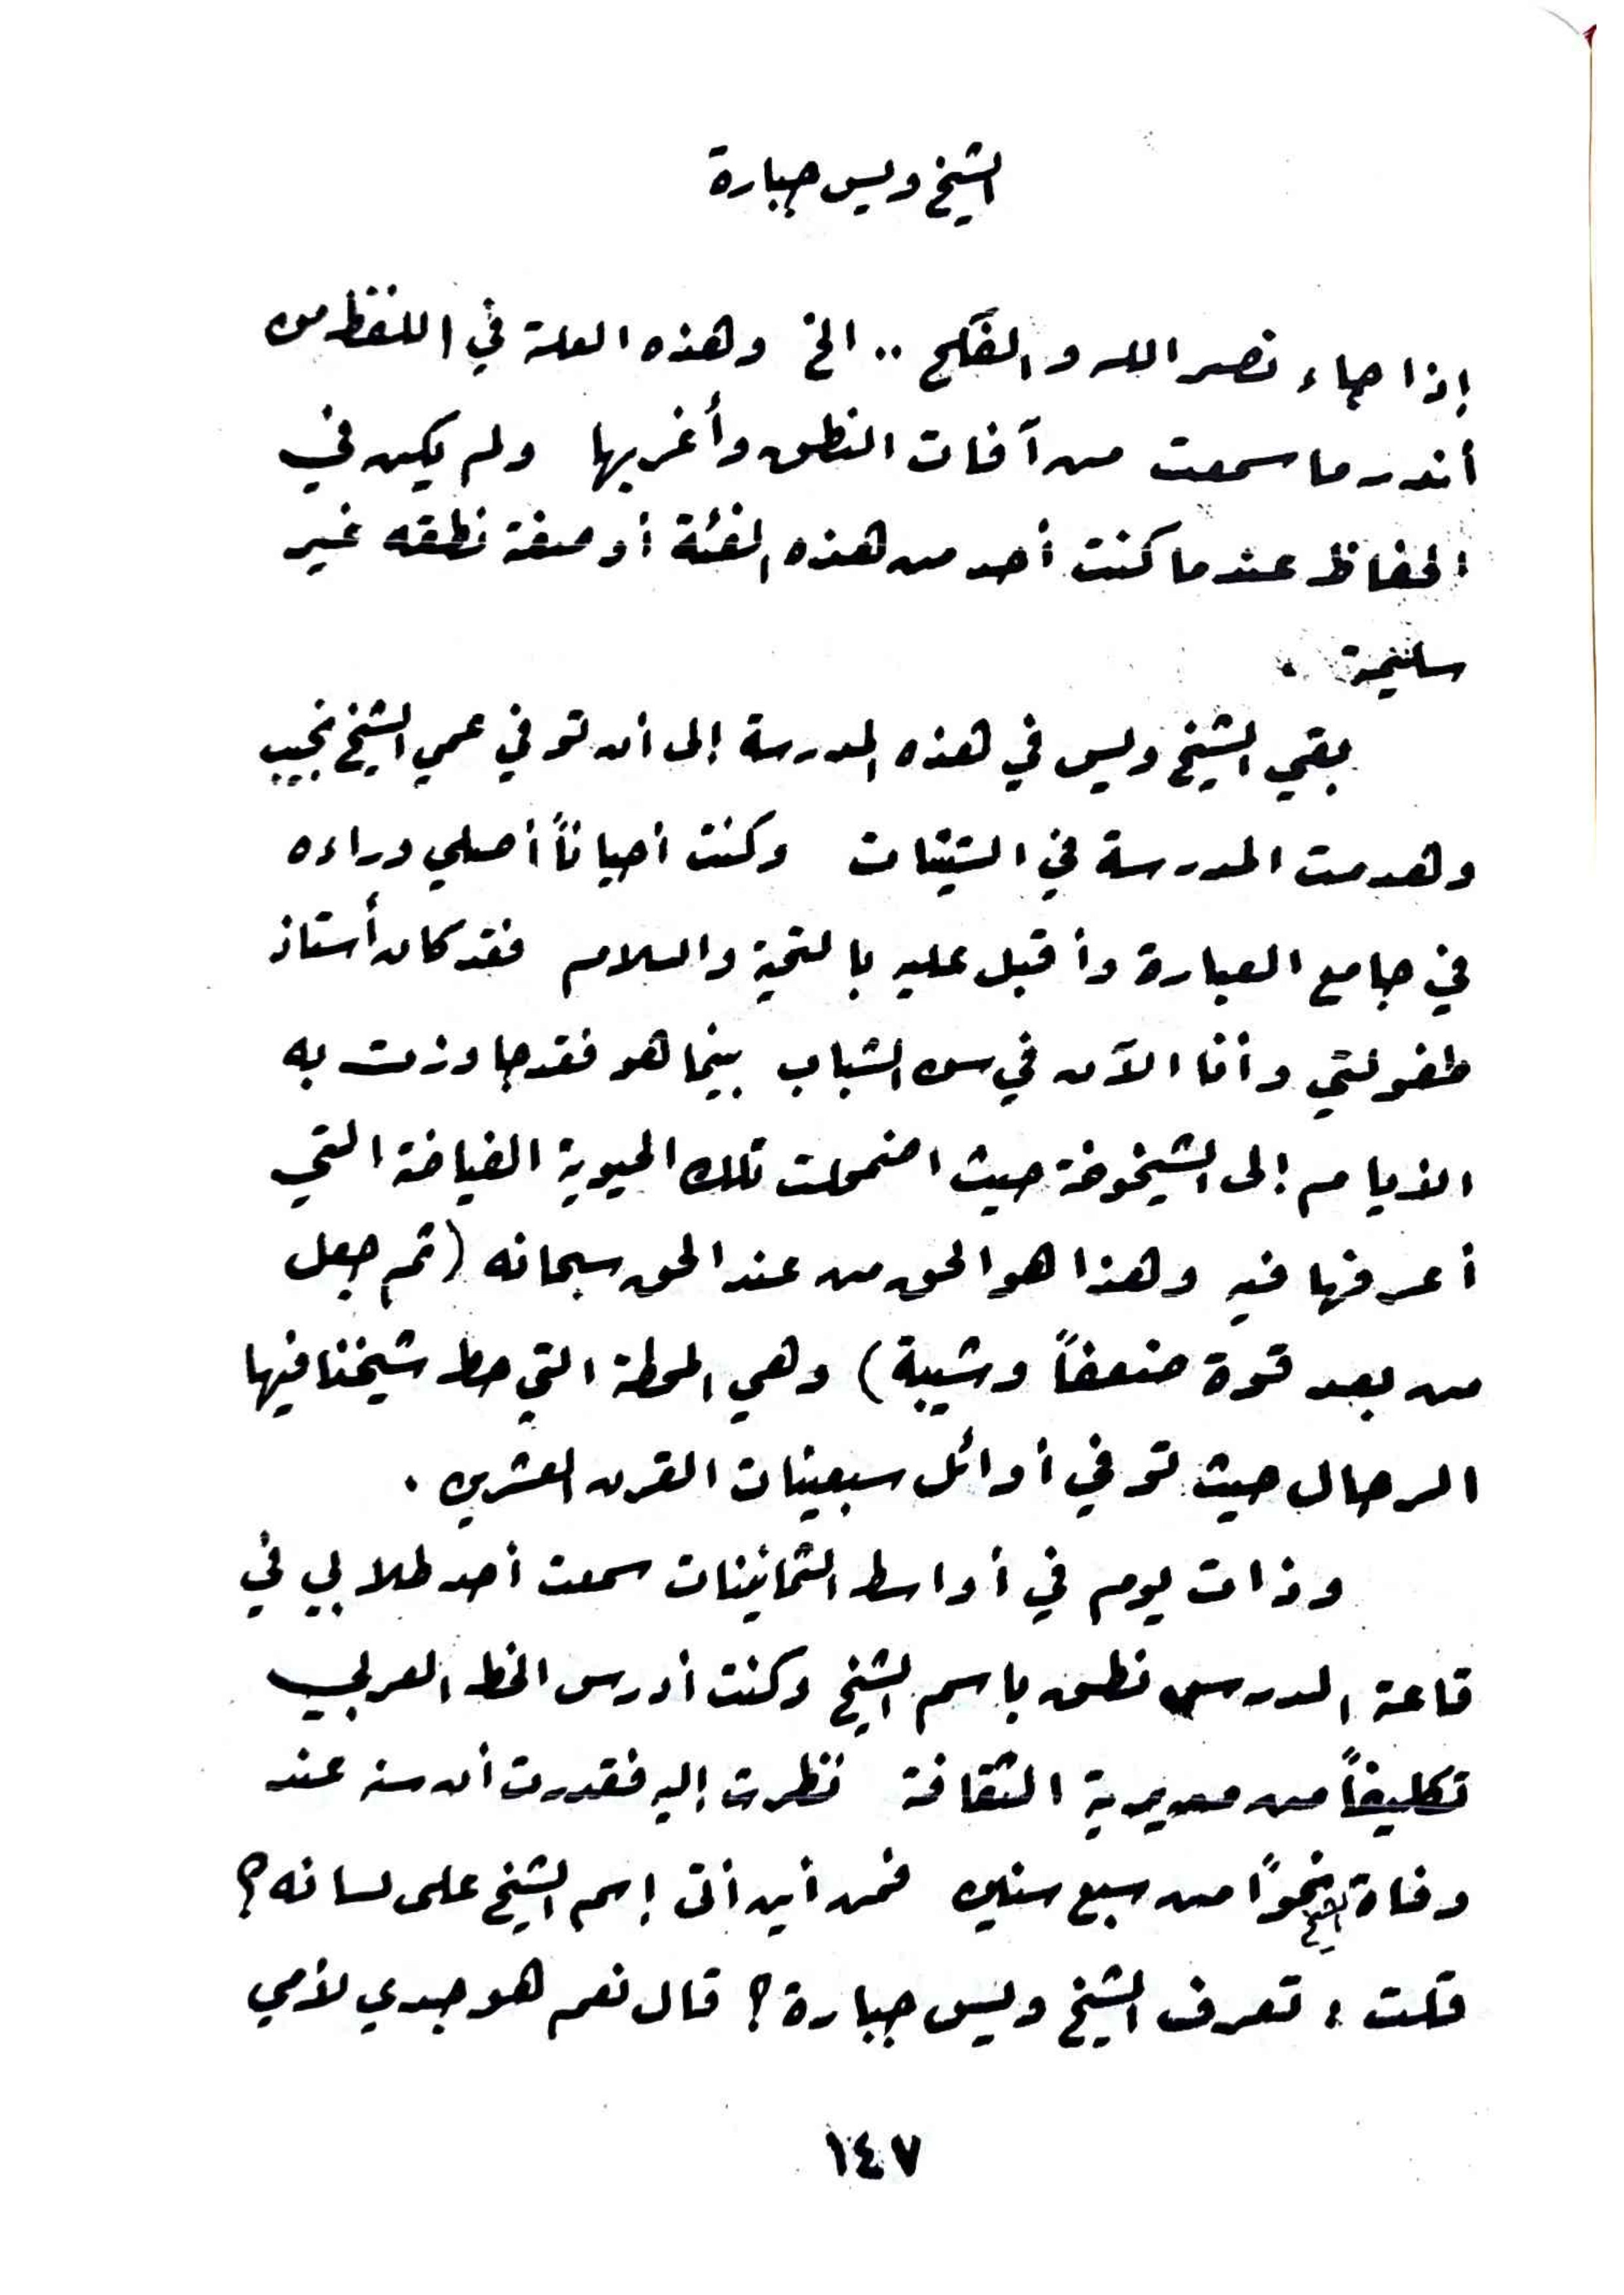 الشيخ ويس جبارة
إذا جاء نصر الله و الفكح .. الخ وهذه العلة في اللفظ من
أندر ما سمعت من آفات النطق وأغربها ولم يكن في
الحفاظ عندما كنت أحد من هذه الفئة أو صفة نطقه غير
سليمة .
بقي الشيخ ويس في هذه المدرسة إلى أن توفي عمي الشيخ نجيب
وهدمت المدرسة في الستينات وكنت أحياناً أصلي وراءه
في جامع العبارة وأقبل عليه بالتحية والسلام فقد كان أستاذ
طفولتي وأنا الآن في سن الشباب بينما هو فقد جاوزت به
الأيام إلى الشيخوخة حيث اضمحلت تلك الحيوية الفياضة التي
أعرفها فيه وهذا هو الحق من عند الحق سبحانه (ثم جعل
من بعد قوة ضعفاً وشيبة) وهي المحطة التي حط شيخنا فيها
الرحال حيث توفي أوائل سبعينات القرن العشرين .
وذات يوم في أواسط الثمانينات سمعت أحد طلابي في
قاعة الدرس نطق باسم الشيخ وكنت أدرس الخط العربي
تكليفاً من مديرية الثقافة نظرت إليه فقدرت أن سنه عند
وفاة الشيخ نحواً من سبع سنين فمن أين أتى إسم الشيخ على لسانه ؟
قلت : تعرف الشيخ ويس جبارة ؟ قال نعم هو جدي لأمي
١٤٧